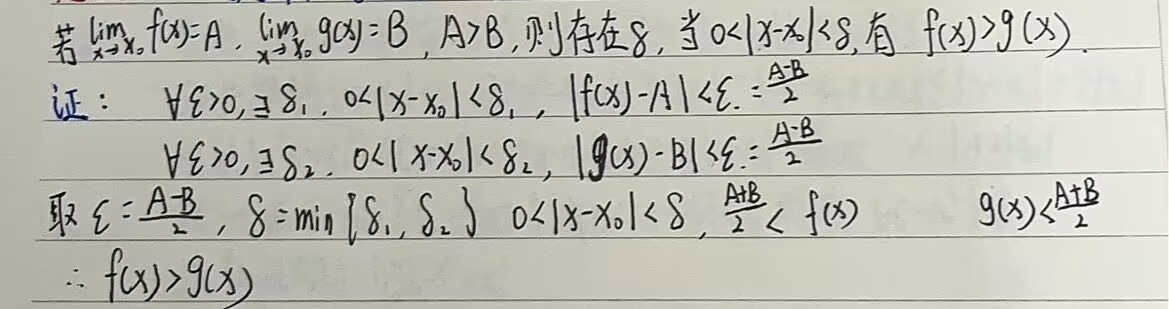 若 lim_{x→x₀} f(x)=A, lim_{x→x₀} g(x)=B, A>B, 则存在δ, 当 0<|x-x₀|<δ, 有 f(x)>g(x).
证: ∀ε>0, ∃δ₁. 0<|x-x₀|<δ₁, |f(x)-A|<ε.=\frac{A-B}{2}
∀ε>0, ∃δ₂. 0<|x-x₀|<δ₂, |g(x)-B|<ε.=\frac{A-B}{2}
取 ε=\frac{A-B}{2}, δ=min{δ₁, δ₂} 0<|x-x₀|<δ, \frac{A+B}{2}<f(x) g(x)<\frac{A+B}{2}
∴ f(x)>g(x)